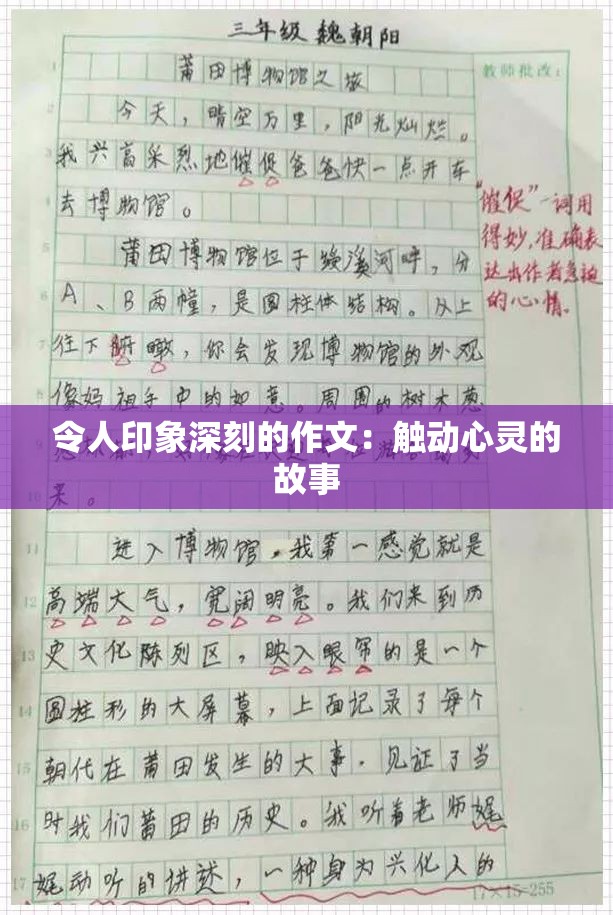 三年级 魏朝阳
莆田博物馆之旅
教师批改：
今天，晴空万里，阳光灿烂。
我兴高采烈地催促爸爸快一点开车
去博物馆。
“催促”一词用
得妙，准确表
达出作者急迫
的心情。
莆田博物馆位于绶溪河畔，分
A、B两幢，是圆柱体结构。从上
往下俯瞰，你会发现博物馆的外观
像妈祖手中的如意。周围的树木葱
令人印象深刻的作文：触动心灵的
故事
来。
进入博物馆，我第一感觉就是
高端大气，宽阔明亮。我们来到历
史文化陈列区，映入眼帘的是一个
圆柱形的大屏幕，上面记录了每个
朝代在莆田发生的大事，见证了当
时我们莆田的历史。我听着老师娓
娓动听的讲述，一种身为兴化人的
17×15=255